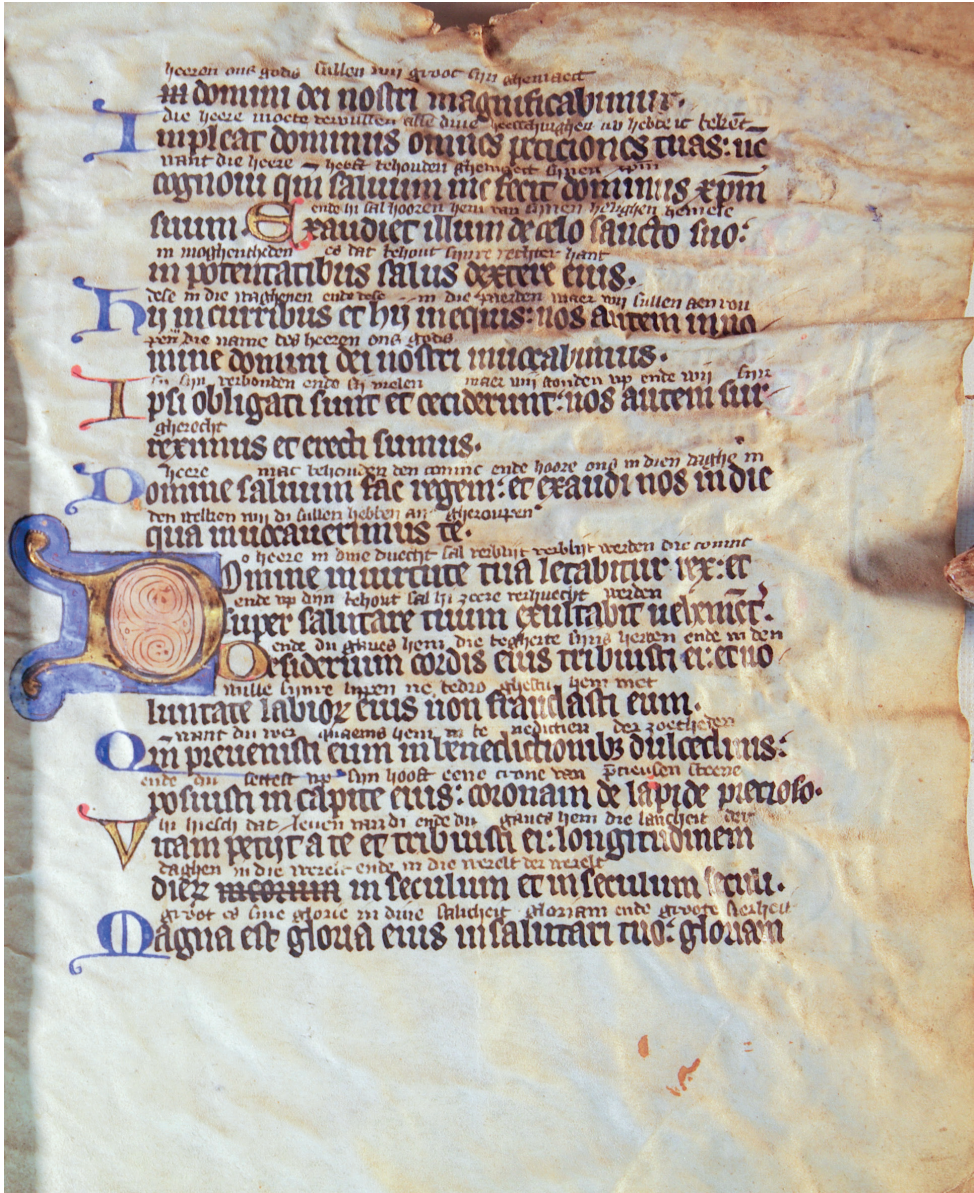 heeren ons gods sullen wij groot sijn ghemaect
in domini dei nostri magnificabimur.
die heere moete vervullen alle dine nu hebbe ic bekēt
Impleat dominus omnes peticiones tuas: nc
want die heere heeft behouden sinen xpm̄
cognoui qm̄ saluum me fecit dominus xpm̄
ende hi sal hooren hem van sinen heilghen hemele
suum. Exaudiet illum de celo sancto suo:
in moghentheden es dat behout sijnre rechter hant
in potentatibus salus dextere eius.
dese in die waghenen ende dese in die paerden maer wij sullen aenrou
hij in curribus et hij in equis: nos autem in no
pen die name des heeren ons gods
mine domini dei nostri inuocabimus.
si sijn verbonden ende si vielen maer wij stonden up ende wij sijn
Ipsi obligati sunt et ceciderunt: nos autem sur
gherecht
reximus et erecti sumus.
heere mac behouden den coninc ende hoore ons in dien daghe in
Domine saluum fac regem: et exaudi nos in die
den welken wij di sullen hebben an gheroupen
qua inuocauerimus te.
o heere in dine duecht sal verblijt werden die coninc
Domine in uirtute tua letabitur rex: et
ende up dijn behout sal hi zeere verhuecht werden
super salutare tuum exultabit uehemēt.
ende du gaves hem die begherte sijns herten ende in den
Desiderium cordis eius tribuisti ei: et uo
wille sijnre lippen hem niet
luntate labioꝝ eius non fraudasti eum.
want du hem in be nedictien der zoetheden
Qm̄ preuenisti eum in benedictionibꝫ dulcedinis:
ende du settest up sijn hooft eene crone van steene
posuisti in capite eius: coronam de lapide precioso.
hi hiesch dat leven van di ende du gaves hem die lancheit der
Vitam petijt a te et tribuisti ei: longitudinem
daghen in die werelt ende in die werelt der werelt
dieꝝ in seculum et in seculum seculi.
groot es sine glorie in dine salicheit gloriam ende groote sierheit
Magna est gloria eius in salutari tuo: gloriam